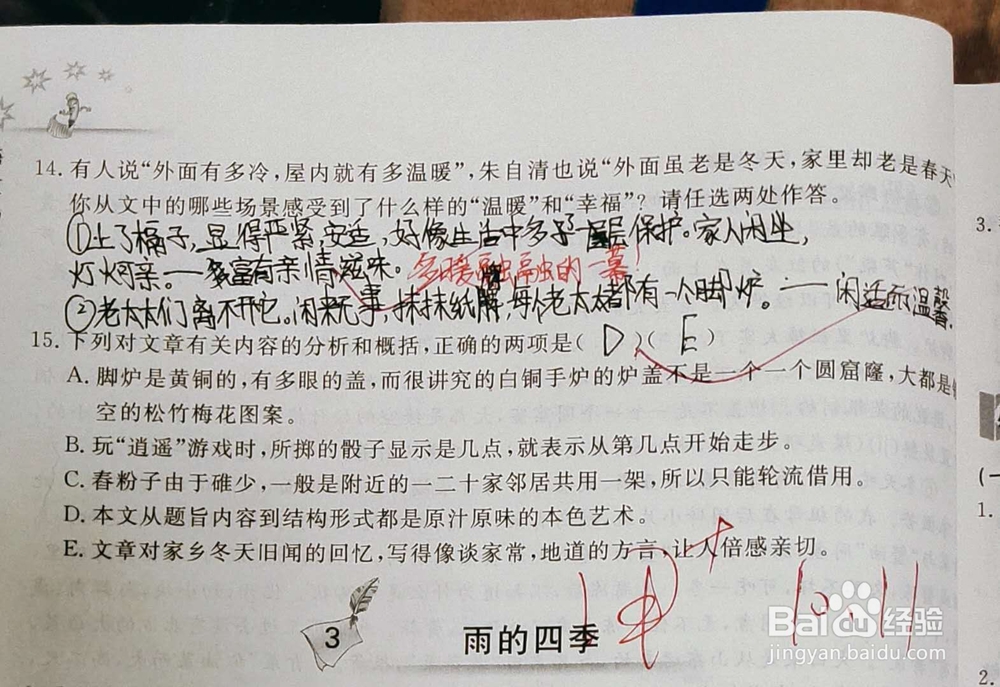 14.有人说“外面有多冷,屋内就有多温暖”,朱自清也说“外面虽老是冬天,家里却老是春天”
你从文中的哪些场景感受到了什么样的“温暖”和“幸福”?请任选两处作答。
①上了槅子,显得严紧,安适,好像生活中多了一层保护。家人闲坐,
灯火可亲。——富有亲情滋味。
多接融融的一幕!
②老太太们离不开它。闲来无事,抹抹纸牌,每个老太太都有一个脚炉。——闲适而温馨.
15.下列对文章有关内容的分析和概括,正确的两项是( D )( E )
A.脚炉是黄铜的,有多眼的盖,而很讲究的白铜手炉的炉盖不是一个一个圆窟窿,大都是
空的松竹梅花图案。
B.玩“逍遥”游戏时,所掷的骰子显示是几点,就表示从第几点开始走步。
C.舂粉子由于碓少,一般是附近的一二十家邻居共用一架,所以只能轮流借用。
D.本文从题旨内容到结构形式都是原汁原味的本色艺术。
E.文章对家乡冬天旧闻的回忆,写得像谈家常,地道的方言,让人倍感亲切。
3 雨的四季
10.11
3.
(一
1.
2.
Baidu 经验
jingyan.baidu.com